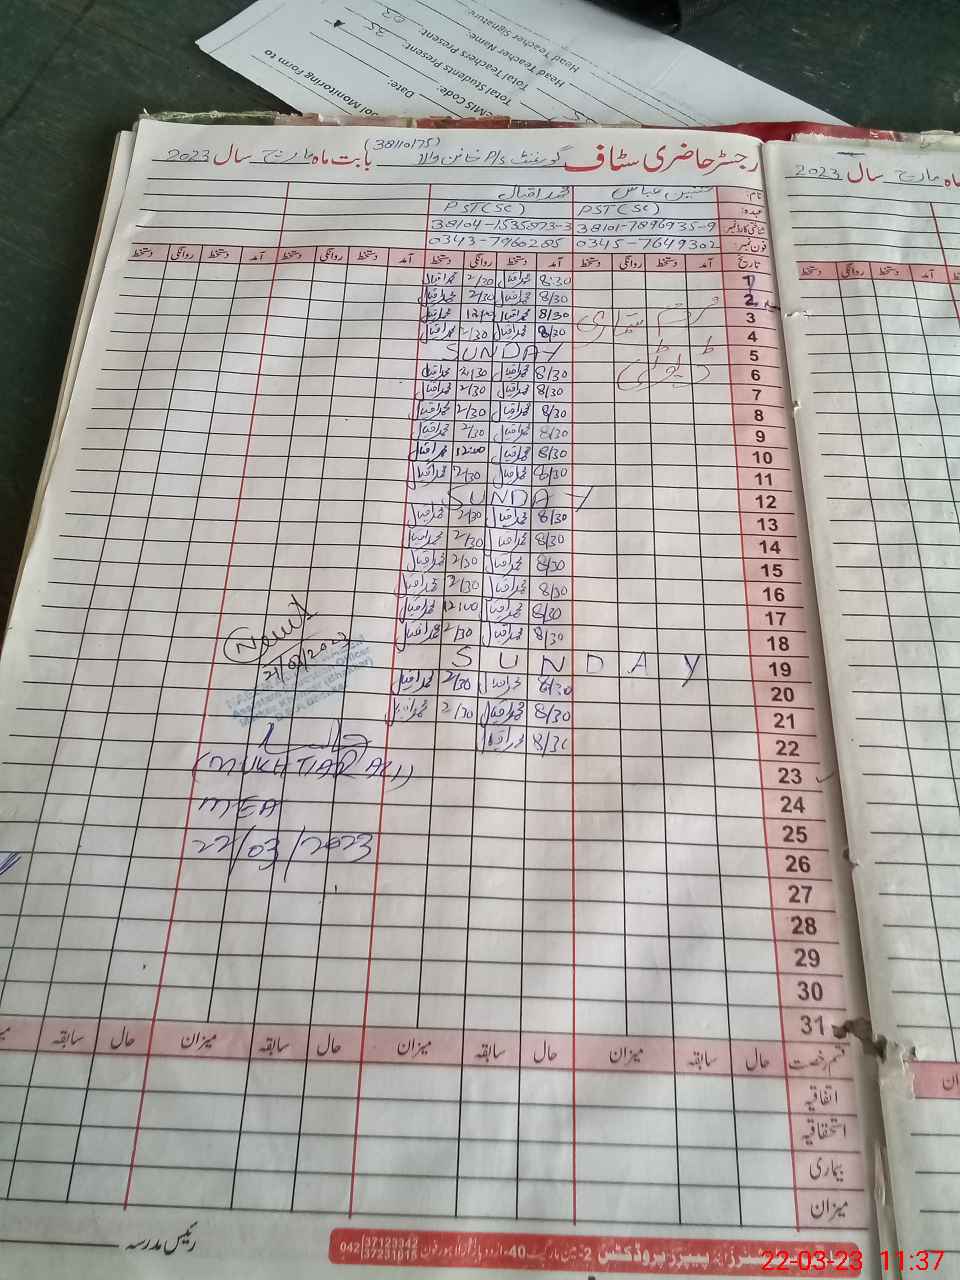 ol Monitoring Form to
EMIS Code:
Date:
Total Students Present: 35
Total Teachers Present: 03
Head Teacher Name:
Head Teacher Signature:
رجسٹر حاضری سٹاف گورنمنٹ P/S (38110175) بابت ماہ مارچ سال 2023
ماہ مارچ سال 2023
نام: عباس محمد اقبال
عہدہ: PST(SC) PST(SC)
شناختی کارڈ نمبر 38101-7896935-9 38104-1535873-3
فون نمبر: 0345-7649302 0343-7960285
تاریخ آمد دستخط روانگی دستخط آمد دستخط روانگی دستخط آمد دستخط روانگی دستخط آمد دستخط روانگی دستخط
1 8:30 محمد اقبال 2/30 محمد اقبال
2 8/30 محمد اقبال 2/30 محمد اقبال
3 8/30 محمد اقبال 12/00 محمد اقبال
4 8/30 محمد اقبال 2/30 محمد اقبال
5 SUNDAY
ڈیوٹی
6 8/30 محمد اقبال 2/30 محمد اقبال
7 8/30 محمد اقبال 2/30 محمد اقبال
8 8/30 محمد اقبال 2/30 محمد اقبال
9 8/30 محمد اقبال 2/30 محمد اقبال
10 8/30 محمد اقبال 12:00 محمد اقبال
11 8/30 محمد اقبال 2/30 محمد اقبال
12 SUNDAY
13 8/30 محمد اقبال 2/30 محمد اقبال
14 8/30 محمد اقبال 2/30 محمد اقبال
15 8/30 محمد اقبال 2/30 محمد اقبال
16 8/30 محمد اقبال 2/30 محمد اقبال
17 8/30 محمد اقبال 12:00 محمد اقبال
18 8/30 محمد اقبال 2/30 محمد اقبال
19 SUNDAY
20 8/30 محمد اقبال 2/30 محمد اقبال
21 8/30 محمد اقبال 2/30 محمد اقبال
22 8/30 محمد اقبال
23
24
25
26
27
28
29
30
31
21/03/2023
(MUKHTIAR ALI)
MEA
22/03/2023
قسم رخصت حال سابقہ میزان حال سابقہ میزان حال سابقہ میزان حال سابقہ
اتفاقیہ
استحقاقیہ
بیماری
میزان
رئیس مدرسہ
پیپر پروڈکٹس 2-مین مارکیٹ 40-اردو بازار لاہور فون 042 37123342 37231015
22-03-23 11:37